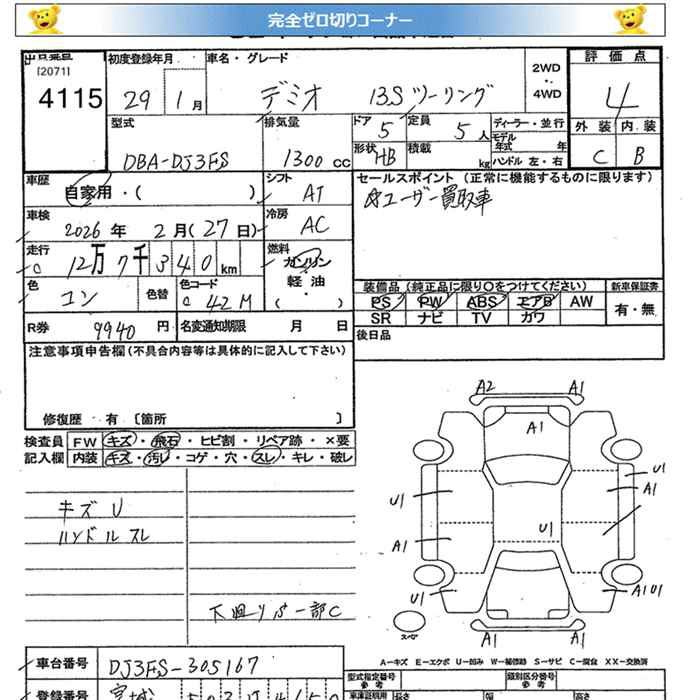 完全ゼロ切りコーナー
出品番号 初度登録年月 車名・グレード 2WD 評価点
[2071]
4115 29 1月 デミオ 13S ツーリング 4WD 4
型式 排気量 ドア 5 定員 5人 ディーラー・並行 外装 内装
DBA-DJ3FS 1300cc 形状 HB 積載 kg モデル年式 年 C B
ハンドル 左・右
車歴 シフト セールスポイント(正常に機能するものに限ります)
自家用・( ) AT ☆ユーザー買取車
車検 冷房
2026年 2月(27日) AC
走行 燃料
C 12万7千340km ガソリン
軽油
・( )
色 色替 色コード 装備品(純正品に限り○をつけてください) 新車保証書
コン C 42M PS PW ABS エアB AW 有・無
SR ナビ TV カワ
R券 9940円 名変通知期限 月 日 後日品
注意事項申告欄(不具合内容等は具体的に記入して下さい)
修復歴 有 〔箇所 〕
検査員 FW キズ・飛石・ヒビ割・リペア跡・×要
記入欄 内装 キズ・汚レ・コゲ・穴・スレ・キレ・破レ
A2 A1
A1
U1
A1
U1
キズ U
ハンドル スレ
U1
A1
U1 A1U1
下廻りS 一部C
スペア
A1 A1
A-キズ E-エクボ U-凹み W-補修跡 S-サビ C-腐食 XX-交換済
車台番号 DJ3FS-305167
型式指定番号 類別区分番号
参考 参考
登録番号 宮城 車庫証明用 長さ 幅 高さ